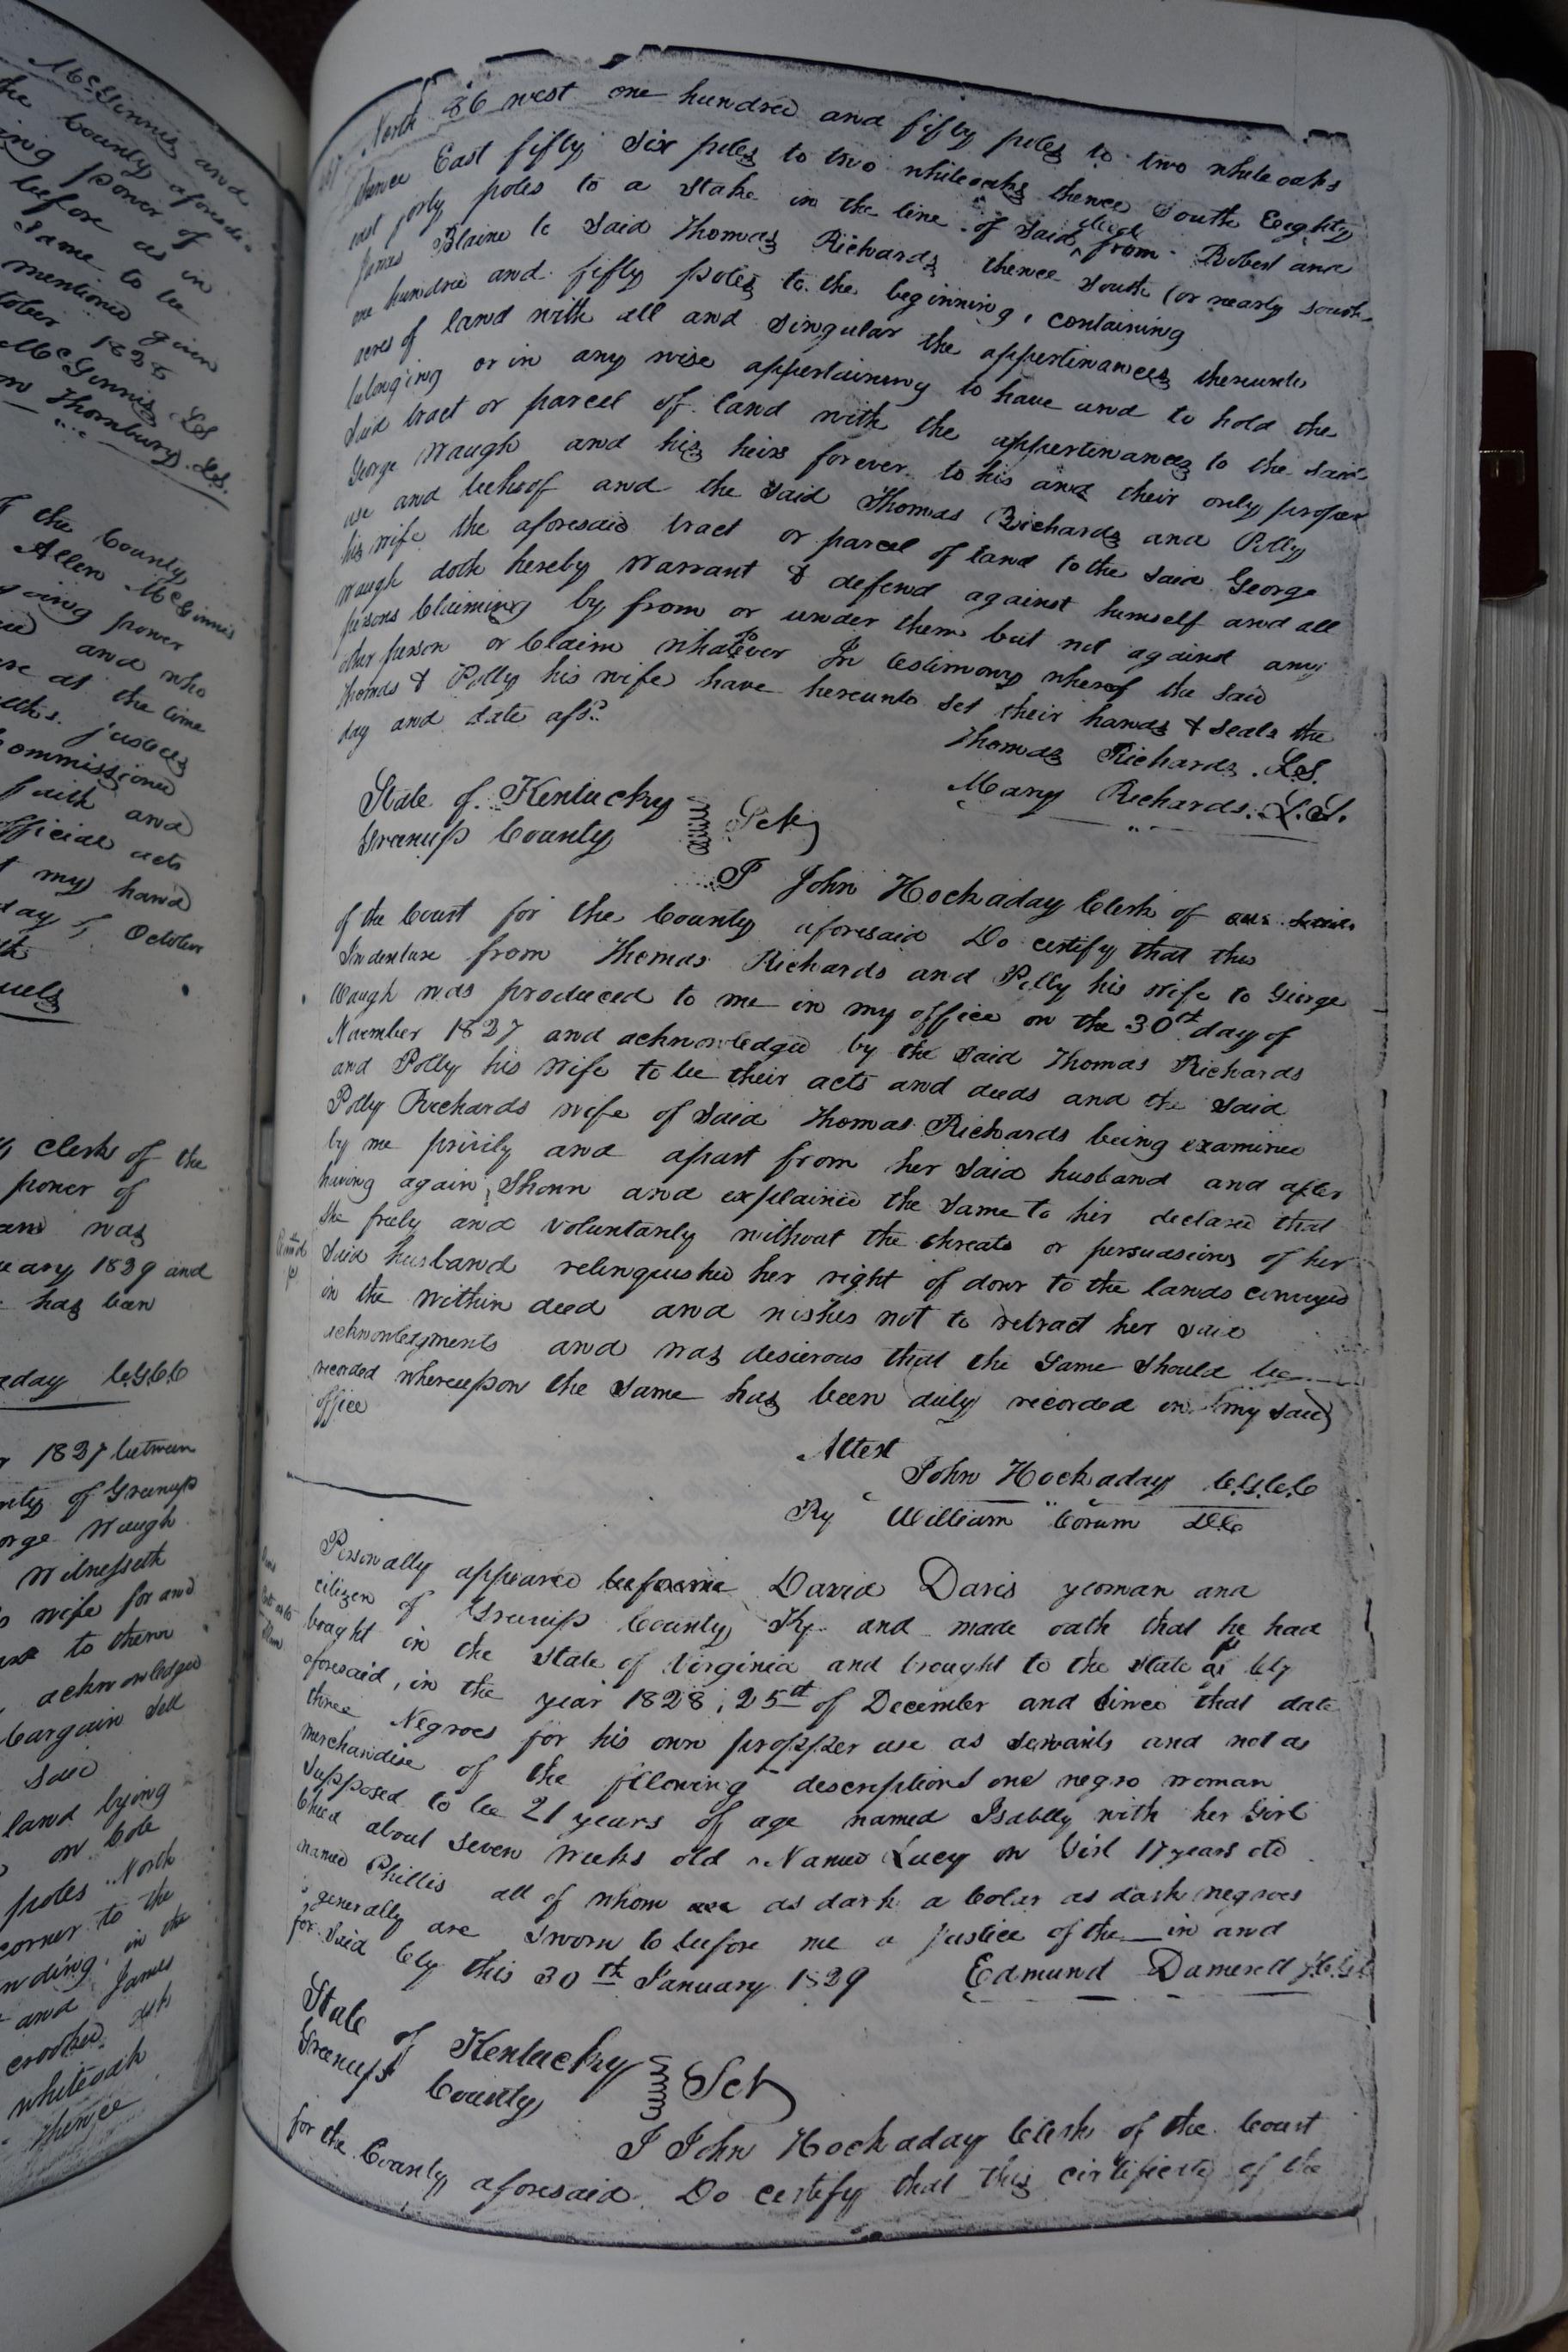 McGinnis and
the County aforesaid
ing power of
before as in
same to be
mentioned given
tober 1828
McGinnis LS
Thornbury. LS.
of the County
Allen McGinnis
ying power
and who
at the time
justices
Commissioned
faith and
official acts
my hand
day of October
uels
clerk of the
power of
was
uary 1829 and
has been
aday C.G.C.C
1827 between
nty of Greenup
orge Waugh
Witnesseth
wife for and
to them
acknowledged
bargain sell
said
land lying
on Cole
poles North
corner to the
nding, in the
and James
crooked ash
whiteoak
thence
North 86 west one hundred and fifty poles to two white oaks
thence East fifty six poles to two whiteoaks thence South Eeghty
east forty poles to a stake in the line of said deed from Robert and
James Blaine to said Thomas Richards thence South (or nearly south
one hundred and fifty poles to the beginning, containing
acres of land with all and singular the appertinances thereunto
belonging or in any wise appertaining to have and to hold the
said tract or parcel of land with the appertinances to the said
George Waugh and his heirs forever to his and their only proper
use and behoof and the said Thomas Richards and Polly
his wife the aforesaid tract or parcel of land to the said George
Waugh doth hereby Warrant & defend against himself and all
persons Claiming by from or under them but not against any
other person or Claim whatsoever In testimony whereof the said
Thomas & Polly his wife have hereunto set their hands & seals the
day and date afsd.
Thomas Richards. LS.
Mary Richards. L.S.
State of Kentucky
Greenup County Sct
I John Hockaday Clerk of
of the Court for the County aforesaid Do certify that this
Indenture from Thomas Richards and Polly his wife to George
Waugh was produced to me in my office on the 30th day of
November 1827 and acknowledged by the said Thomas Richards
and Polly his wife to be their acts and deeds and the said
Polly Richards wife of said Thomas Richards being examined
by me privily and apart from her said husband and after
having again shown and explained the same to her declared that
she freely and voluntarily without the threats or persuasions of her
said husband relinquished her right of dowr to the lands conveyed
in the within deed and wishes not to retract her said
acknowledgments and was desierous that the same should be
recorded whereupon the same has been duly recorded in my said
office
Attest
John Hockaday C.G.C.C
By William Corum DC
Personally appeared before me David Davis yeoman and
citizen of Greenup County Ky. and made oath that he had
bought in the State of Virginia and brought to the state & Cty
aforesaid, in the year 1828, 25th of December and since that date
three Negroes for his own propper use as servants and not as
merchandise of the fllowing descriptions one negro woman
supposed to be 21 years of age named Isablly with her Girl
Child about seven weeks old Named Lucy on Girl 17 years old
named Phillis all of whom are as dark a Colar as dark negroes
generally are sworn to before me a Justice of the __ in and
for said Cty this 30th January 1829 Edmund Damerell
State of Kentucky
Greenup County Sct
I John Hockaday Clerk of the Court
for the County aforesaid. Do certify that this certificate of the